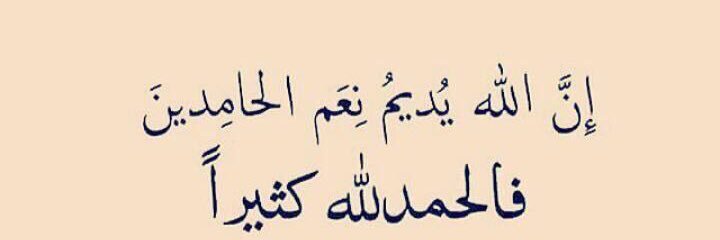 إِنَّ الله يُديمُ نِعَم الحامِدينَ
فالحمدلله كثيراً